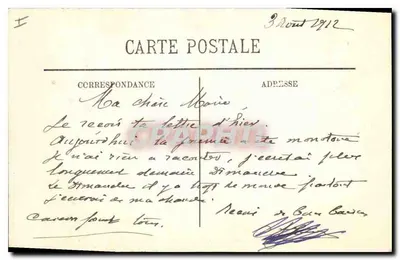 I
3 Aout 1912
CARTE POSTALE
CORRESPONDANCE
ADRESSE
Ma chère Marie,
Je reçois ta lettre d'hier.
Aujourd'hui, la première
Je n'ai rien a raconter, j'ecrirai plus
longuement demain Dimanche
Le dimanche il y a trop de monde partout
j'enverrai de ma chambre.
Reçois de bons baisers
tous.